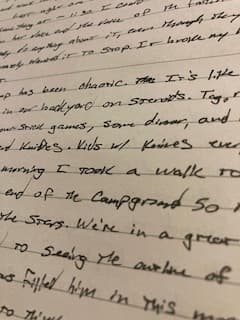 her voice and the voice of the
to anything about it, even though
wanted it to stop. It broke my
has been chaotic. It's like
in our backyard on steroids. Tag,
stick games, some dinner, and
Knives. Kids w/ Knives
morning I took a walk to
end of the Campground so
the stars. We're in a great
to seeing the outline of
filled him in this
to think